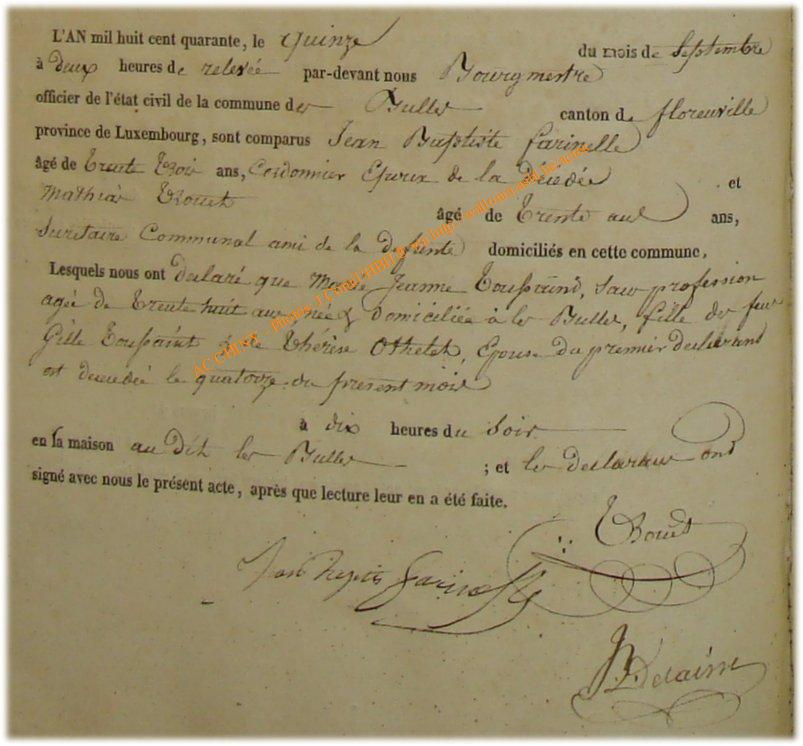 L'AN mil huit cent quarante, le quinze du mois de Septembre
à deux heures de relevée par-devant nous Bourgmestre
officier de l'état civil de la commune des Bulles canton de florenville
province de Luxembourg, sont comparus Jean Baptiste farinelle
âgé de trente trois ans, Cordonnier Epoux de la Décédée et
Mathias Rouet âgé de trente ans,
Secretaire Communal ami de la defunte domiciliés en cette commune.
Lesquels nous ont déclaré que Marie Jeanne Toussaint, Sans profession
agée de trente huit ans, née & domiciliée à les Bulles, fille de feu
Gille Toussaint & de Thérèse Othelet, Epouse du premier declarant
est decedée le quatorze du présent mois
à dix heures du Soir
en sa maison au Dit les Bulles ; et les declarans ont
signé avec nous le présent acte, après que lecture leur en a été faite.
Rouet
Jean Baptiste farinelle